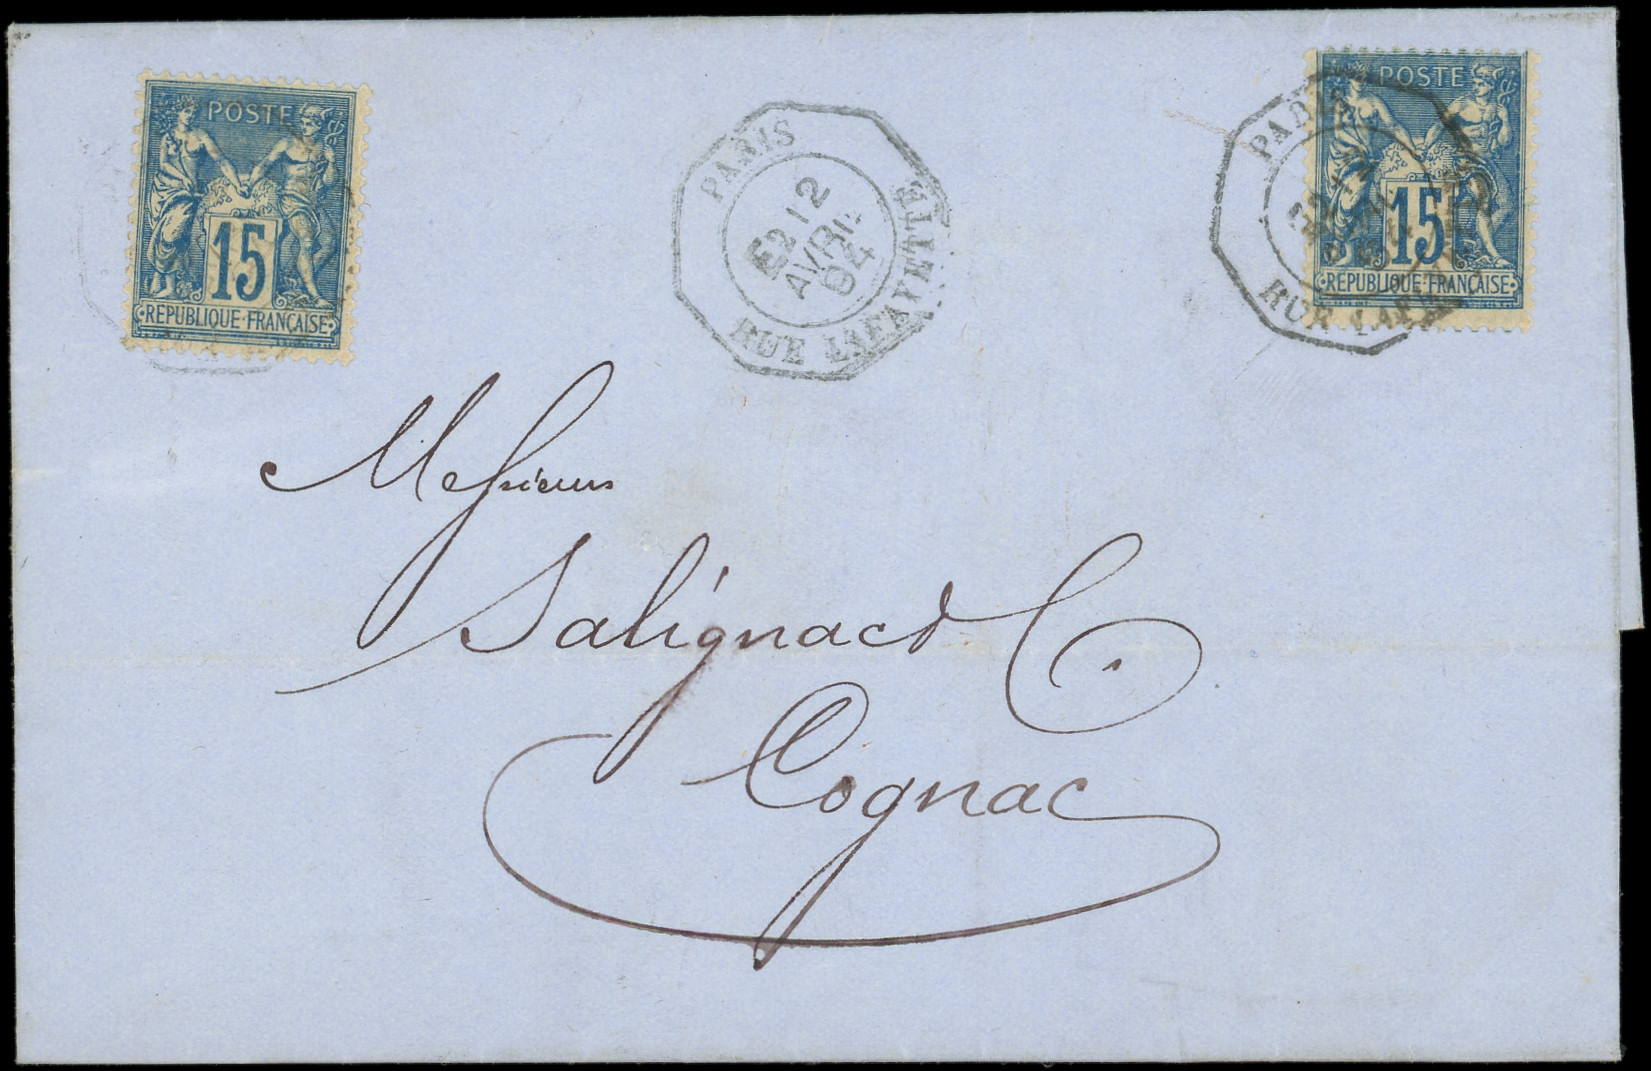 POSTE
15
RÉPUBLIQUE-FRANÇAISE
PARIS
E2 12
AVRIL
84
RUE LAFAYETTE
POSTE
15
RÉPUBLIQUE-FRANÇAISE
PARIS
RUE LAFA
Messieurs
Salignac & C
Cognac